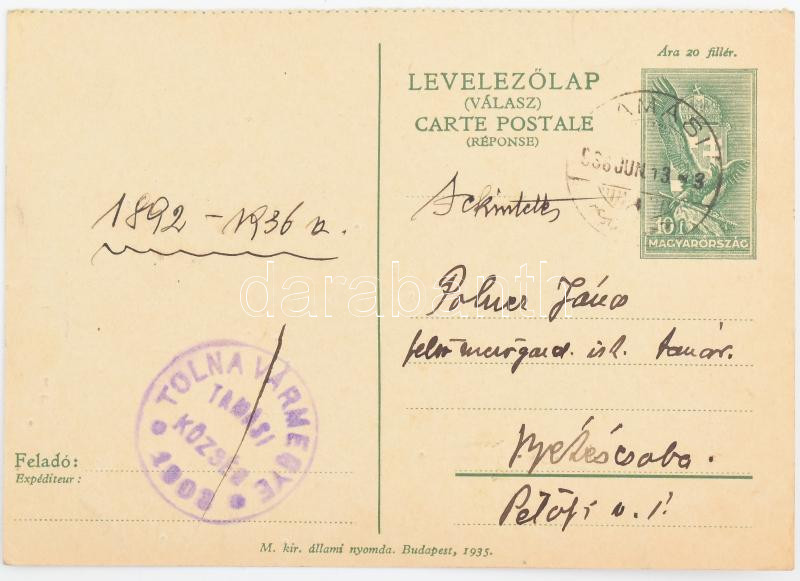 Ára 20 fillér.
LEVELEZŐLAP
(VÁLASZ)
CARTE POSTALE
(RÉPONSE)
TAMÁSI
936 JUN 13
10 f
MAGYARORSZÁG
1892 – 1936 v.
Tekintetes
Polner János
felső mezőgazd. isk. tanár.
Békéscsaba.
Petőfi u. 1.
darabanth
TOLNA VÁRMEGYE
TAMÁSI
KÖZSÉG
Feladó:
Expéditeur:
M. kir. állami nyomda. Budapest, 1935.